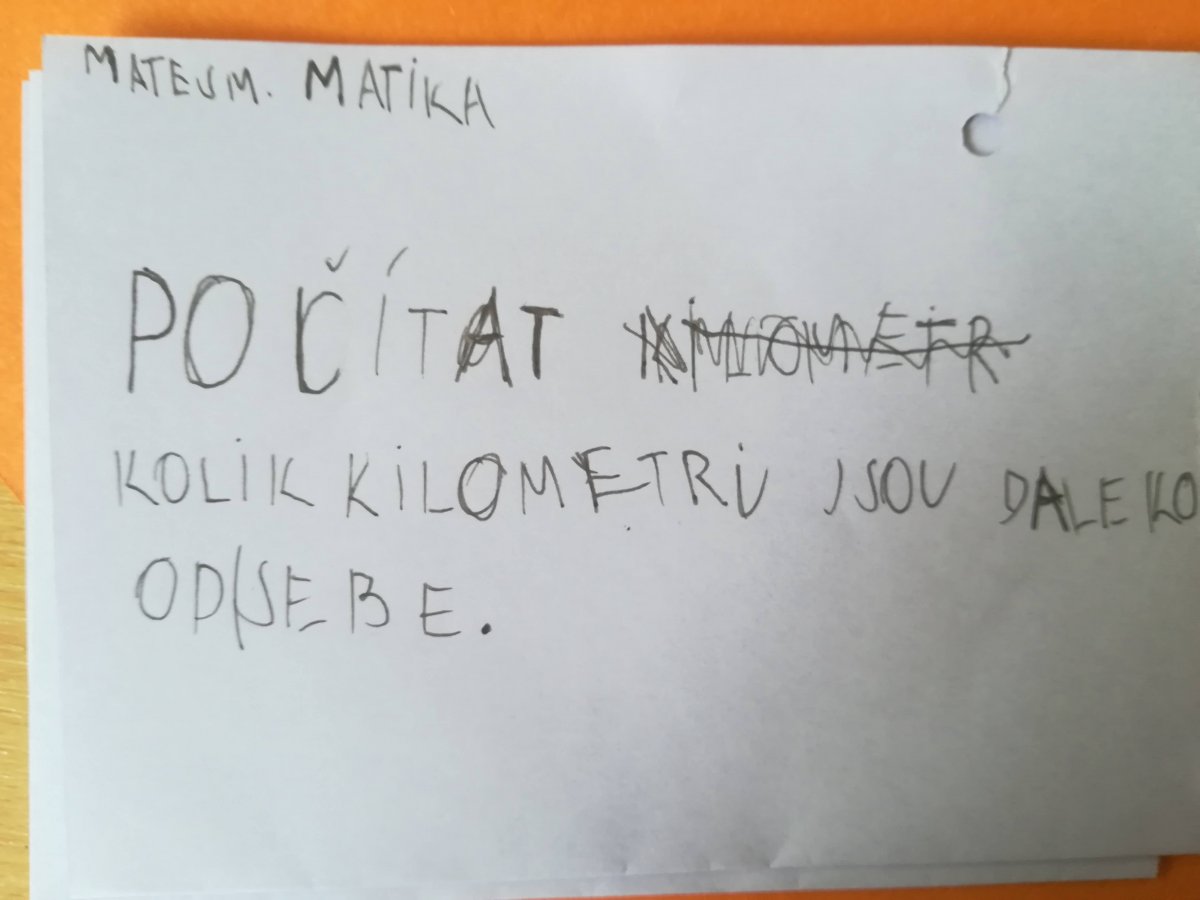 MATEJ M. MATIKA
POČÍTAT
KOLIK KILOMETRU JSOU DALEKO
OD SEBE.